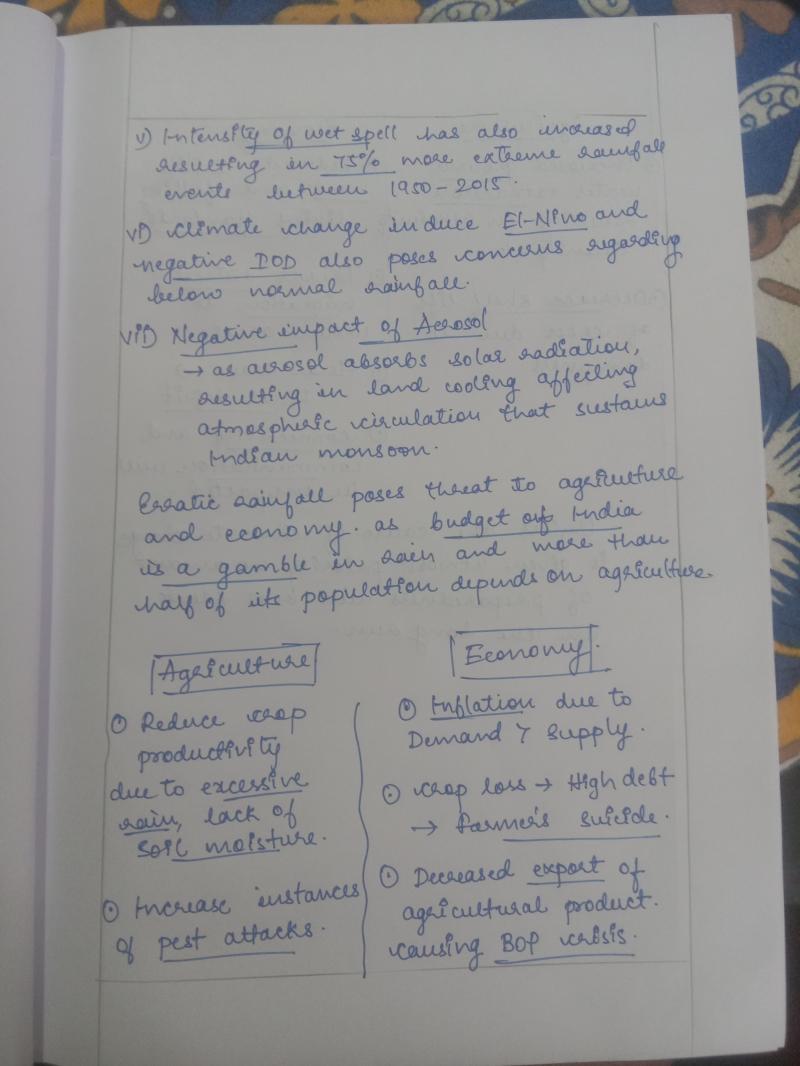 v) Intensity of wet spell has also increased
resulting in 75% more extreme rainfall
events between 1950-2015.
vi) climate change induce El-Nino and
negative IOD also poses concerns regarding
below normal rainfall.
vii) Negative impact of Aerosol
→ as aerosol absorbs solar radiation,
resulting in land cooling affecting
atmospheric circulation that sustains
Indian monsoon.
Erratic rainfall poses threat to agriculture
and economy. as budget of India
is a gamble in rain and more than
half of its population depends on agriculture.
Agriculture
Reduce crop
productivity
due to excessive
rain, lack of
soil moisture.
Increase instances
of pest attacks.
Economy.
Inflation due to
Demand > supply.
crop loss → High debt
→ farmer's suicide.
Decreased export of
agricultural product.
causing BOP crisis.